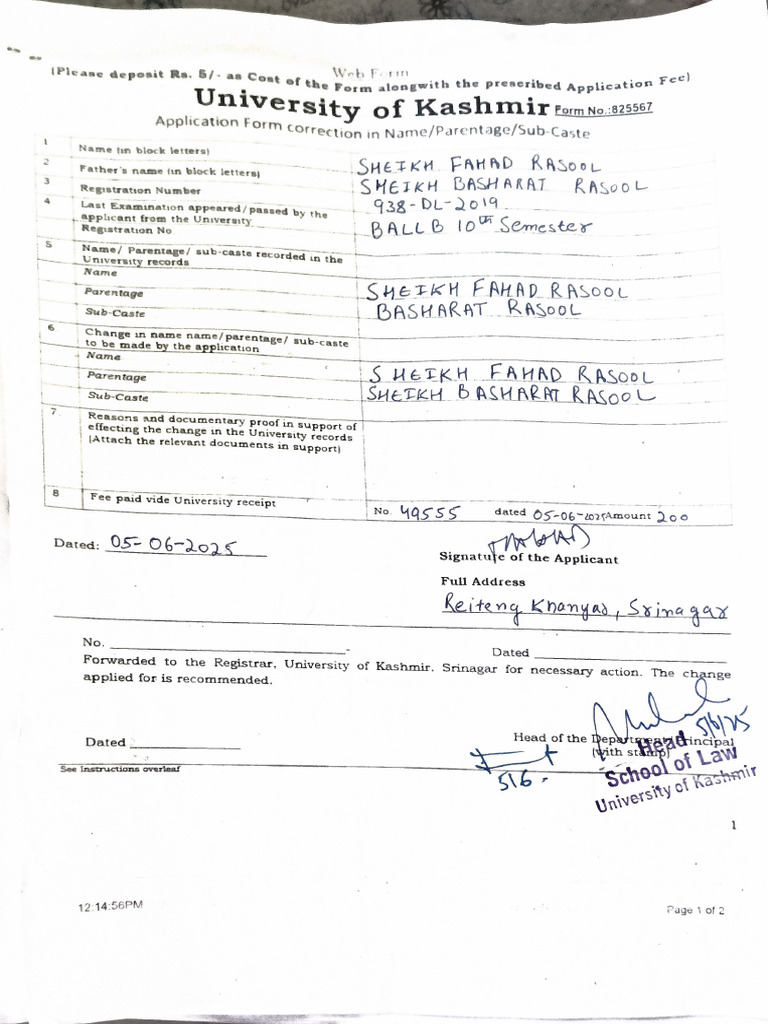 Web Form
(Please deposit Rs. 5/- as Cost of the Form alongwith the prescribed Application Fee)
University of Kashmir Form No.:825567
Application Form correction in Name/Parentage/Sub-Caste
1 Name (in block letters) SHEIKH FAHAD RASOOL
2 Father's name (in block letters) SHEIKH BASHARAT RASOOL
3 Registration Number 938-DL-2019
4 Last Examination appeared/passed by the BALLB 10th Semester
applicant from the University
Registration No
5 Name/ Parentage/ sub-caste recorded in the
University records
Name SHEIKH FAHAD RASOOL
Parentage BASHARAT RASOOL
Sub-Caste
6 Change in name name/parentage/ sub-caste
to be made by the application
Name SHEIKH FAHAD RASOOL
Parentage SHEIKH BASHARAT RASOOL
Sub-Caste
7. Reasons and documentary proof in support of
effecting the change in the University records
(Attach the relevant documents in support)
8 Fee paid vide University receipt No. 49555 dated 05-06-2025 Amount 200
Dated: 05-06-2025
Signature of the Applicant
Full Address
Reiteng Khanyar, Srinagar
No.
Dated
Forwarded to the Registrar, University of Kashmir, Srinagar for necessary action. The change
applied for is recommended.
5/6/25
Dated
Head of the Department/Principal
(with stamp)
Head
School of Law
University of Kashmir
5/6.
See Instructions overleaf
1
12:14:56PM
Page 1 of 2